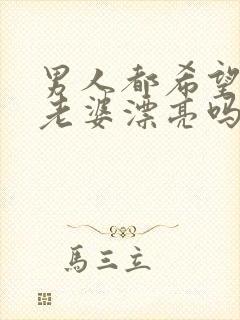 男人都希望
老婆漂亮吗
馬三立